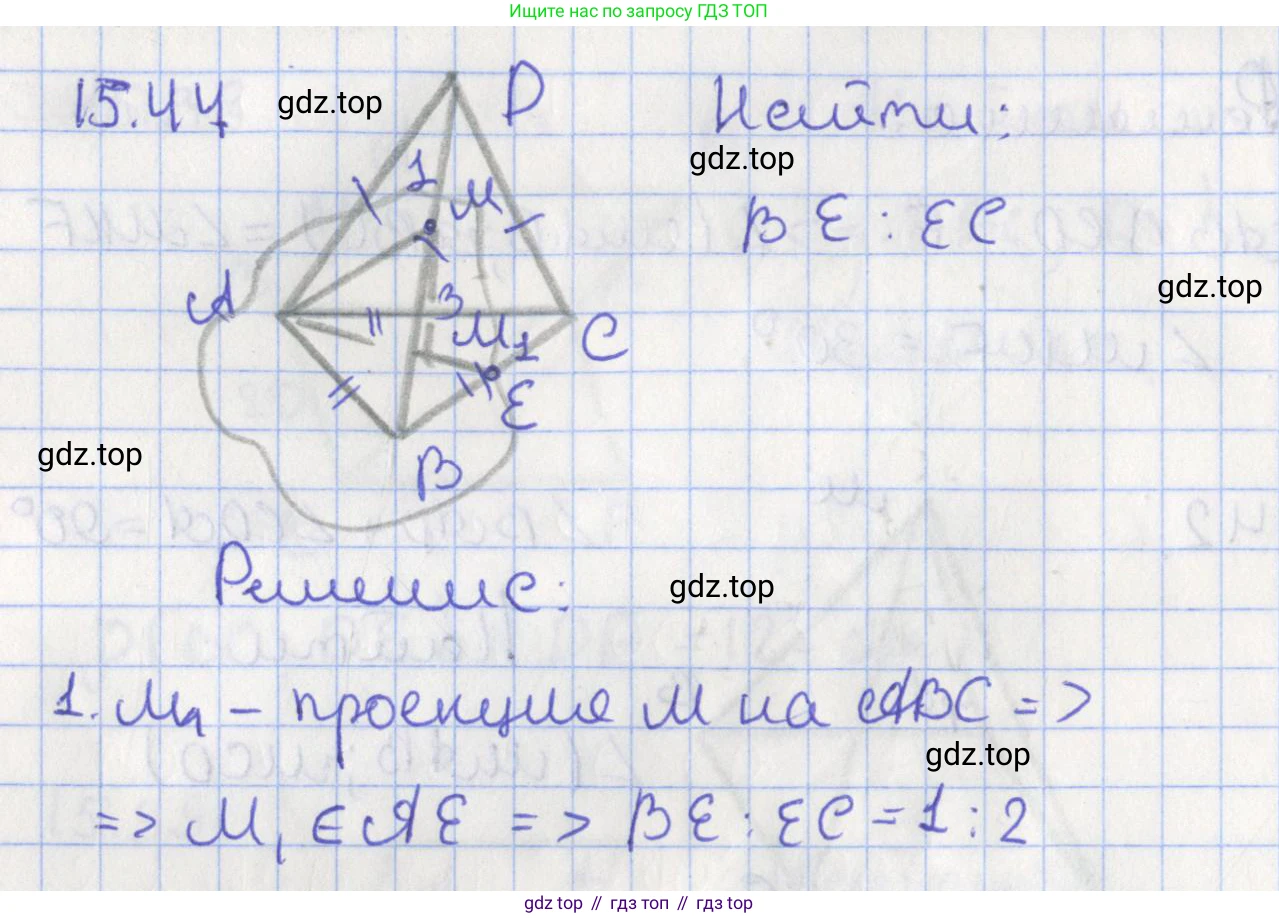 Ищите нас по запросу ГДЗ ТОП
15.47
gdz.top
D
Найти:
gdz.top
1
M
BE : EC
A
gdz.top
3
M1
C
E
gdz.top
B
Решение:
gdz.top
1. M1 – проекция M на ABC =>
gdz.top
=> M1 ∈ AE => BE : EC = 1 : 2
gdz.top // гдз топ // gdz top